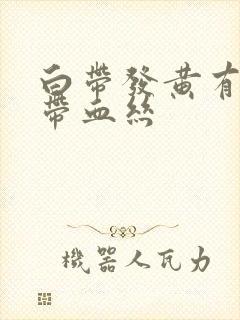 白帶發黃有
帶血絲
機器人瓦力